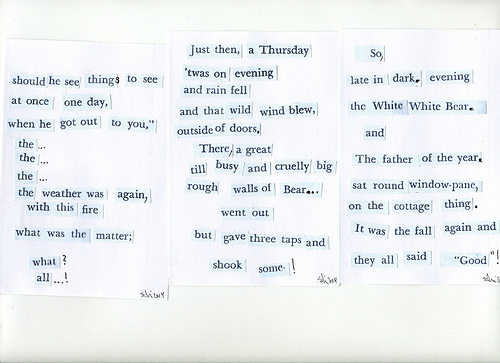 should he see things to see
at once one day,
when he got out to you,”
the ...
the ...
the ...
the weather was again,
with this fire
what was the matter;
what ?
all ...!
Just then, a Thursday
'twas on evening
and rain fell
and that wild wind blew,
outside of doors,
There, a great
till busy and cruelly big
rough walls of Bear...
went out
but gave three taps and
shook some !
So,
late in dark, evening
the White White Bear.
and
The father of the year,
sat round window-pane,
on the cottage thing.
It was the fall again and
they all said “Good”!